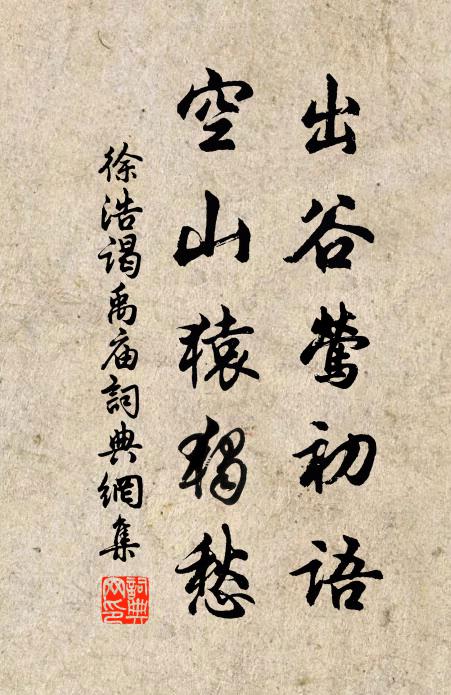 出谷莺初语
空山猿独愁
徐浩谒禹庙词典网集
词典网印